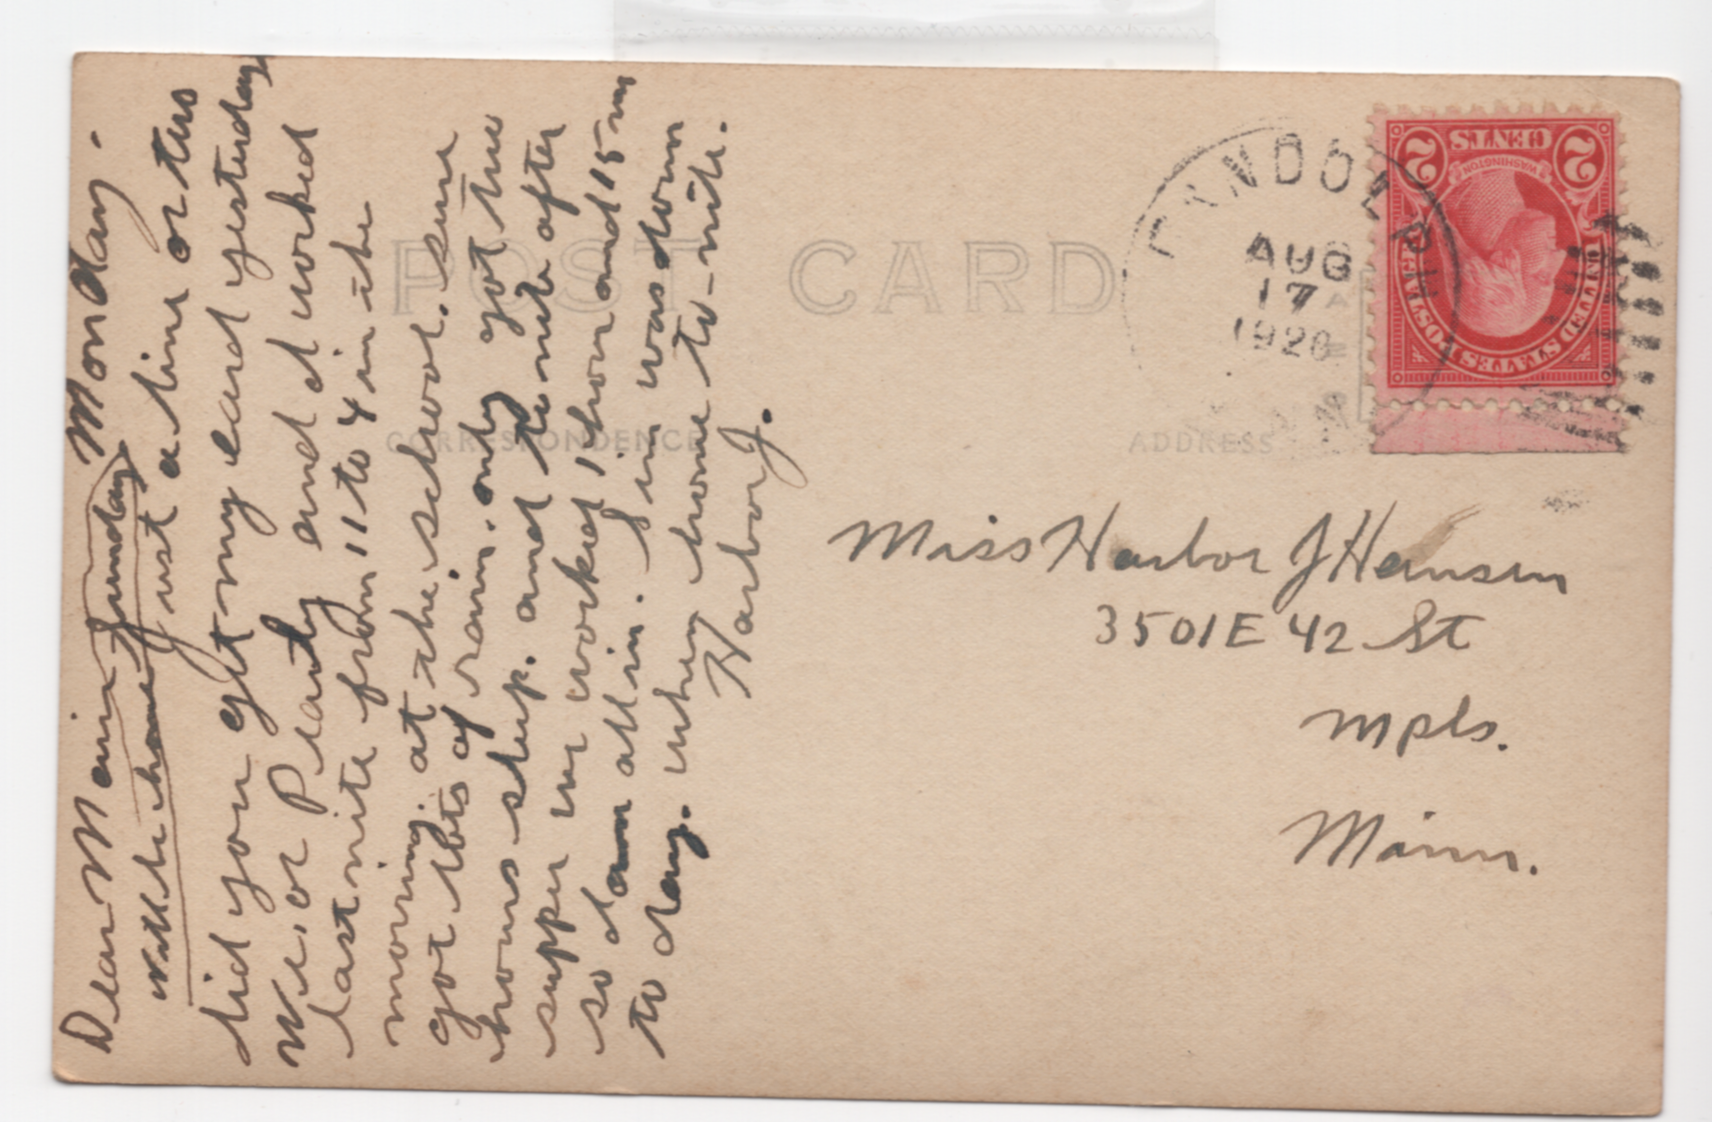 Monday.
Dear Main
will be home Sunday
Just a line or two
did you get my card yesterday
We, or Plardy and I worked
last nite from 11 to 4 in the
morning. at the school. sure
got lots of rain. only got two
hours sleep. and to nite after
supper we worked 1 hour and 15 m
so I am all in. I im was down
to day. uhen home to-nite.
Harbor J.
POST CARD
CORRESPONDENCE
ADDRESS
RANDOM
AUG
17
1926
2 CENTS 2
WASHINGTON
UNITED STATES POSTAGE
Miss Harbor J Hansen
3501 E 42 St
Mpls.
Minn.